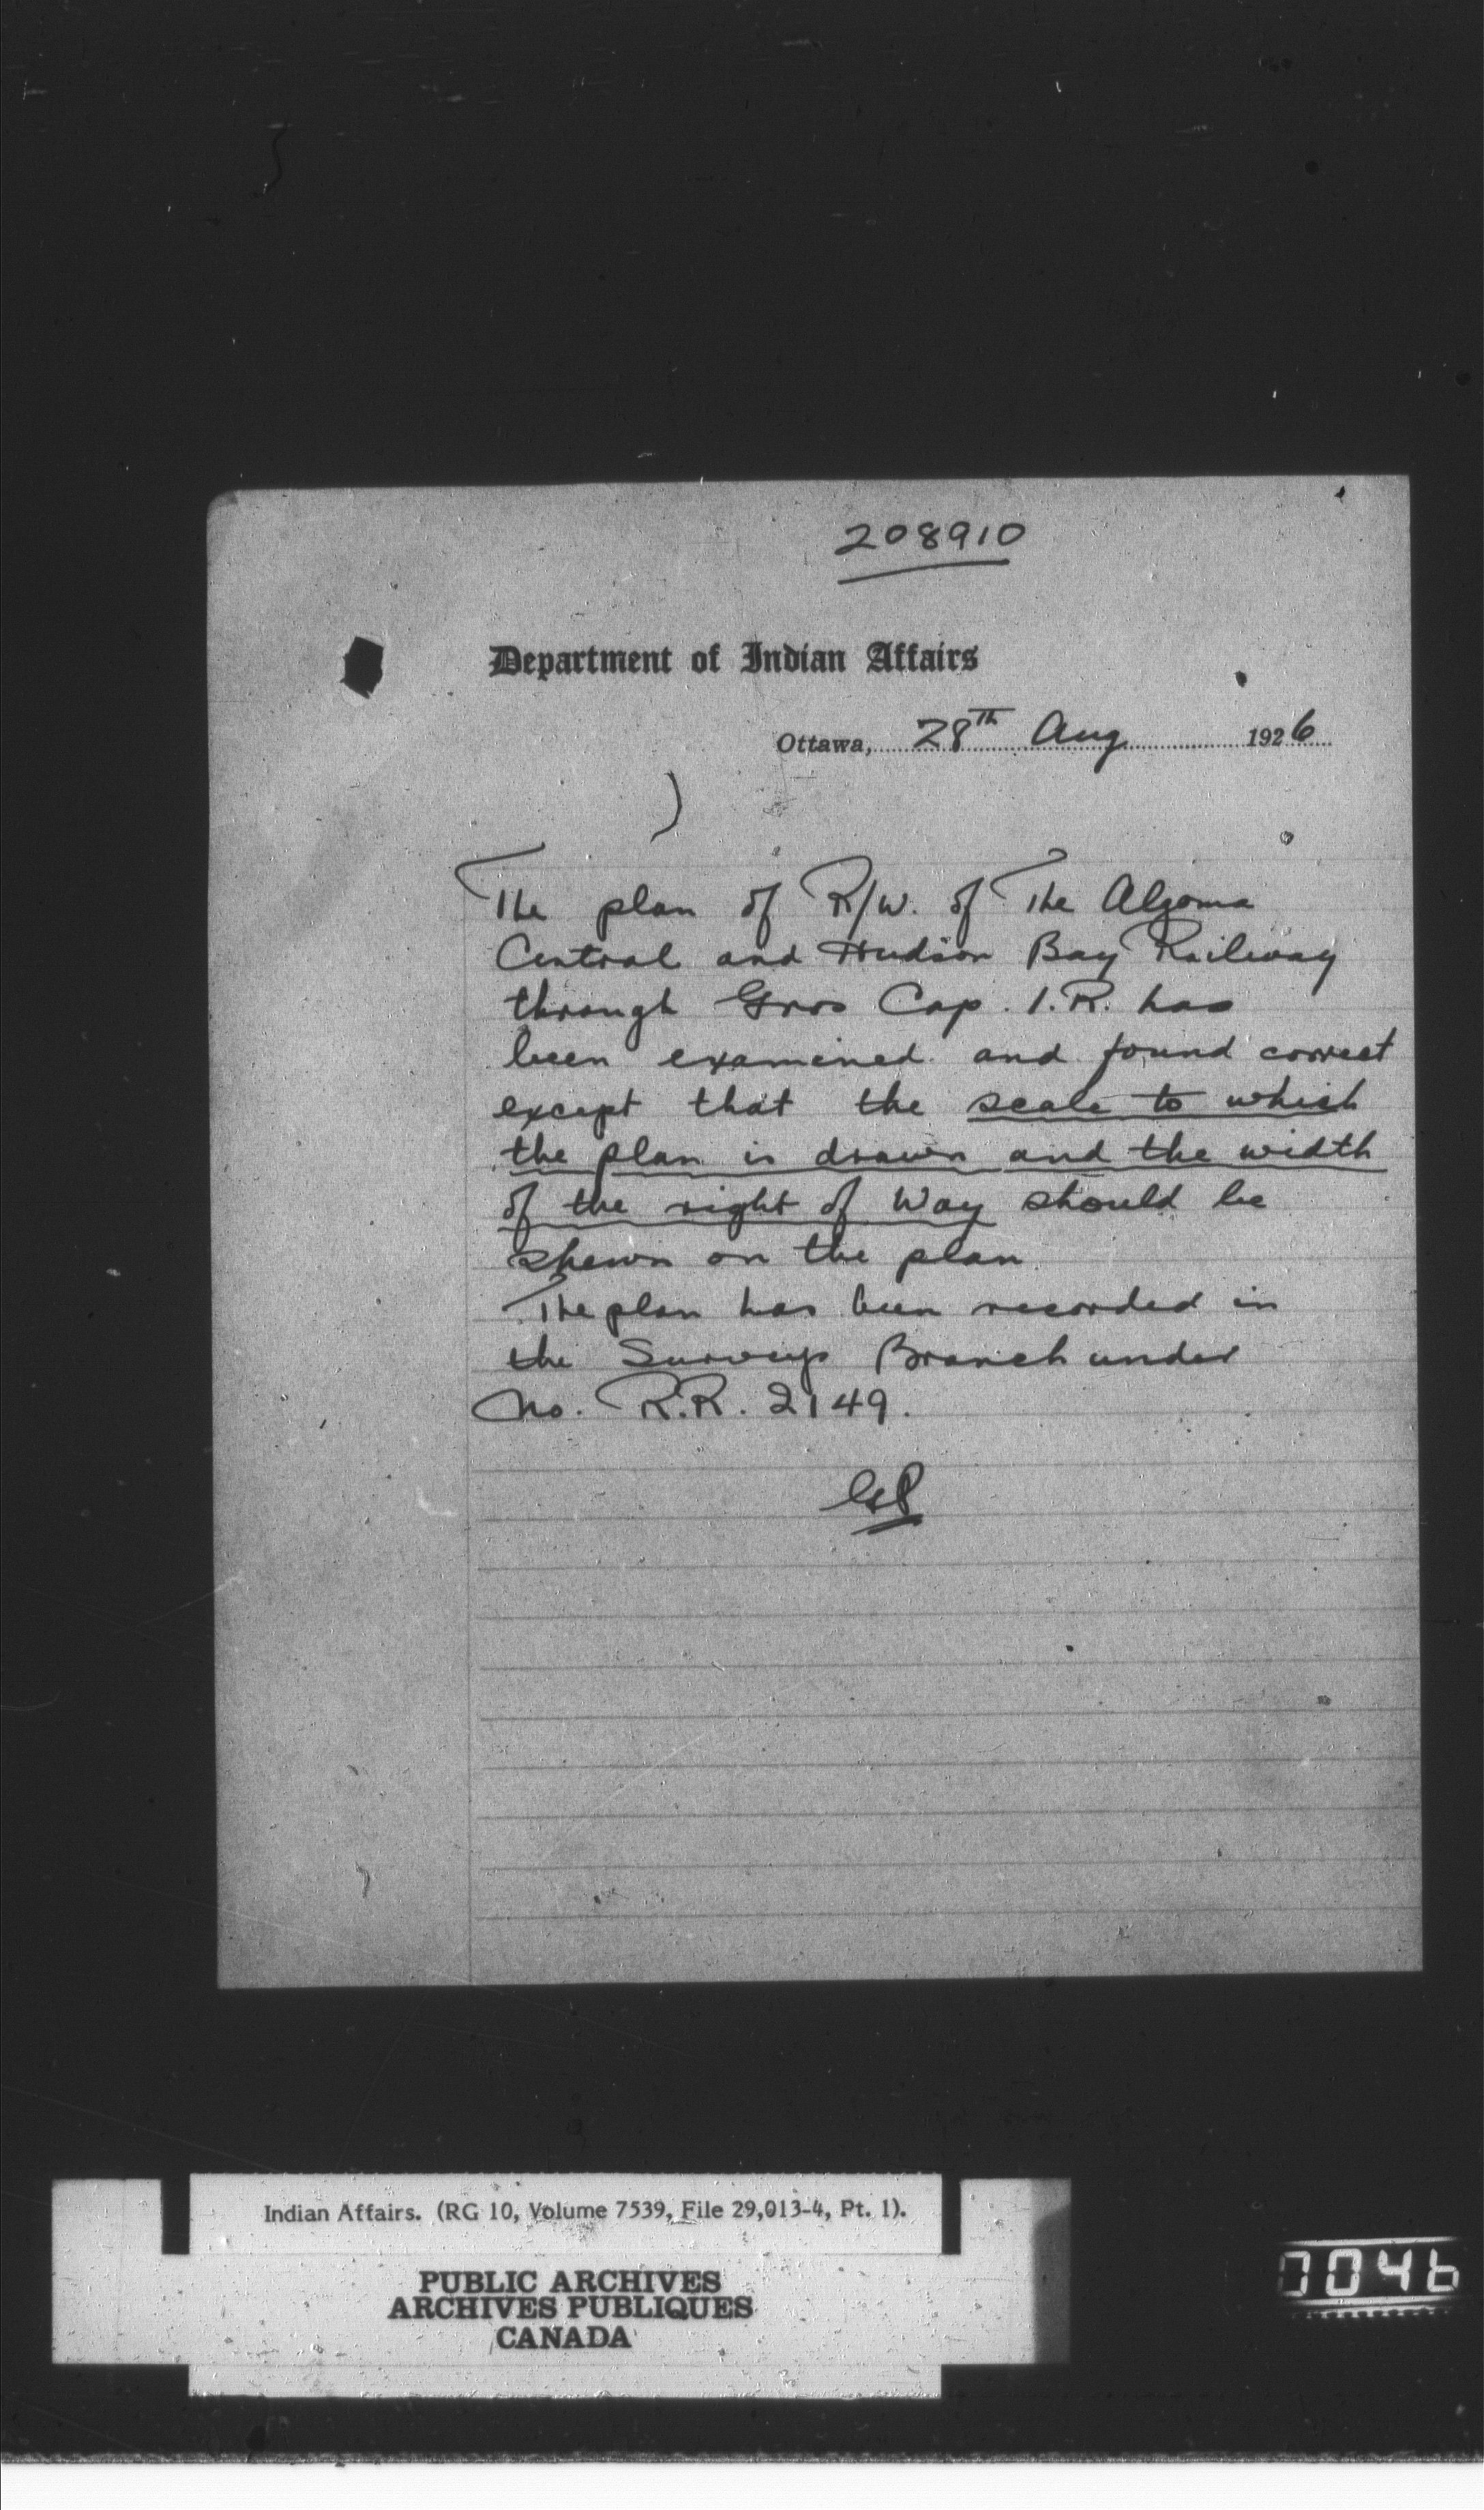 208910
Department of Indian Affairs
Ottawa, 28th Aug 1926
The plan of R/W. of The Algoma
Central and Hudson Bay Railway
through Gros Cap. I.R. has
been examined and found correct
except that the scale to which
the plan is drawn and the width
of the right of Way should be
shewn on the plan.
The plan has been recorded in
the Surveys Branch under
No. R.R. 2149.
Indian Affairs. (RG 10, Volume 7539, File 29,013-4, Pt. 1).
PUBLIC ARCHIVES
ARCHIVES PUBLIQUES
CANADA
0046